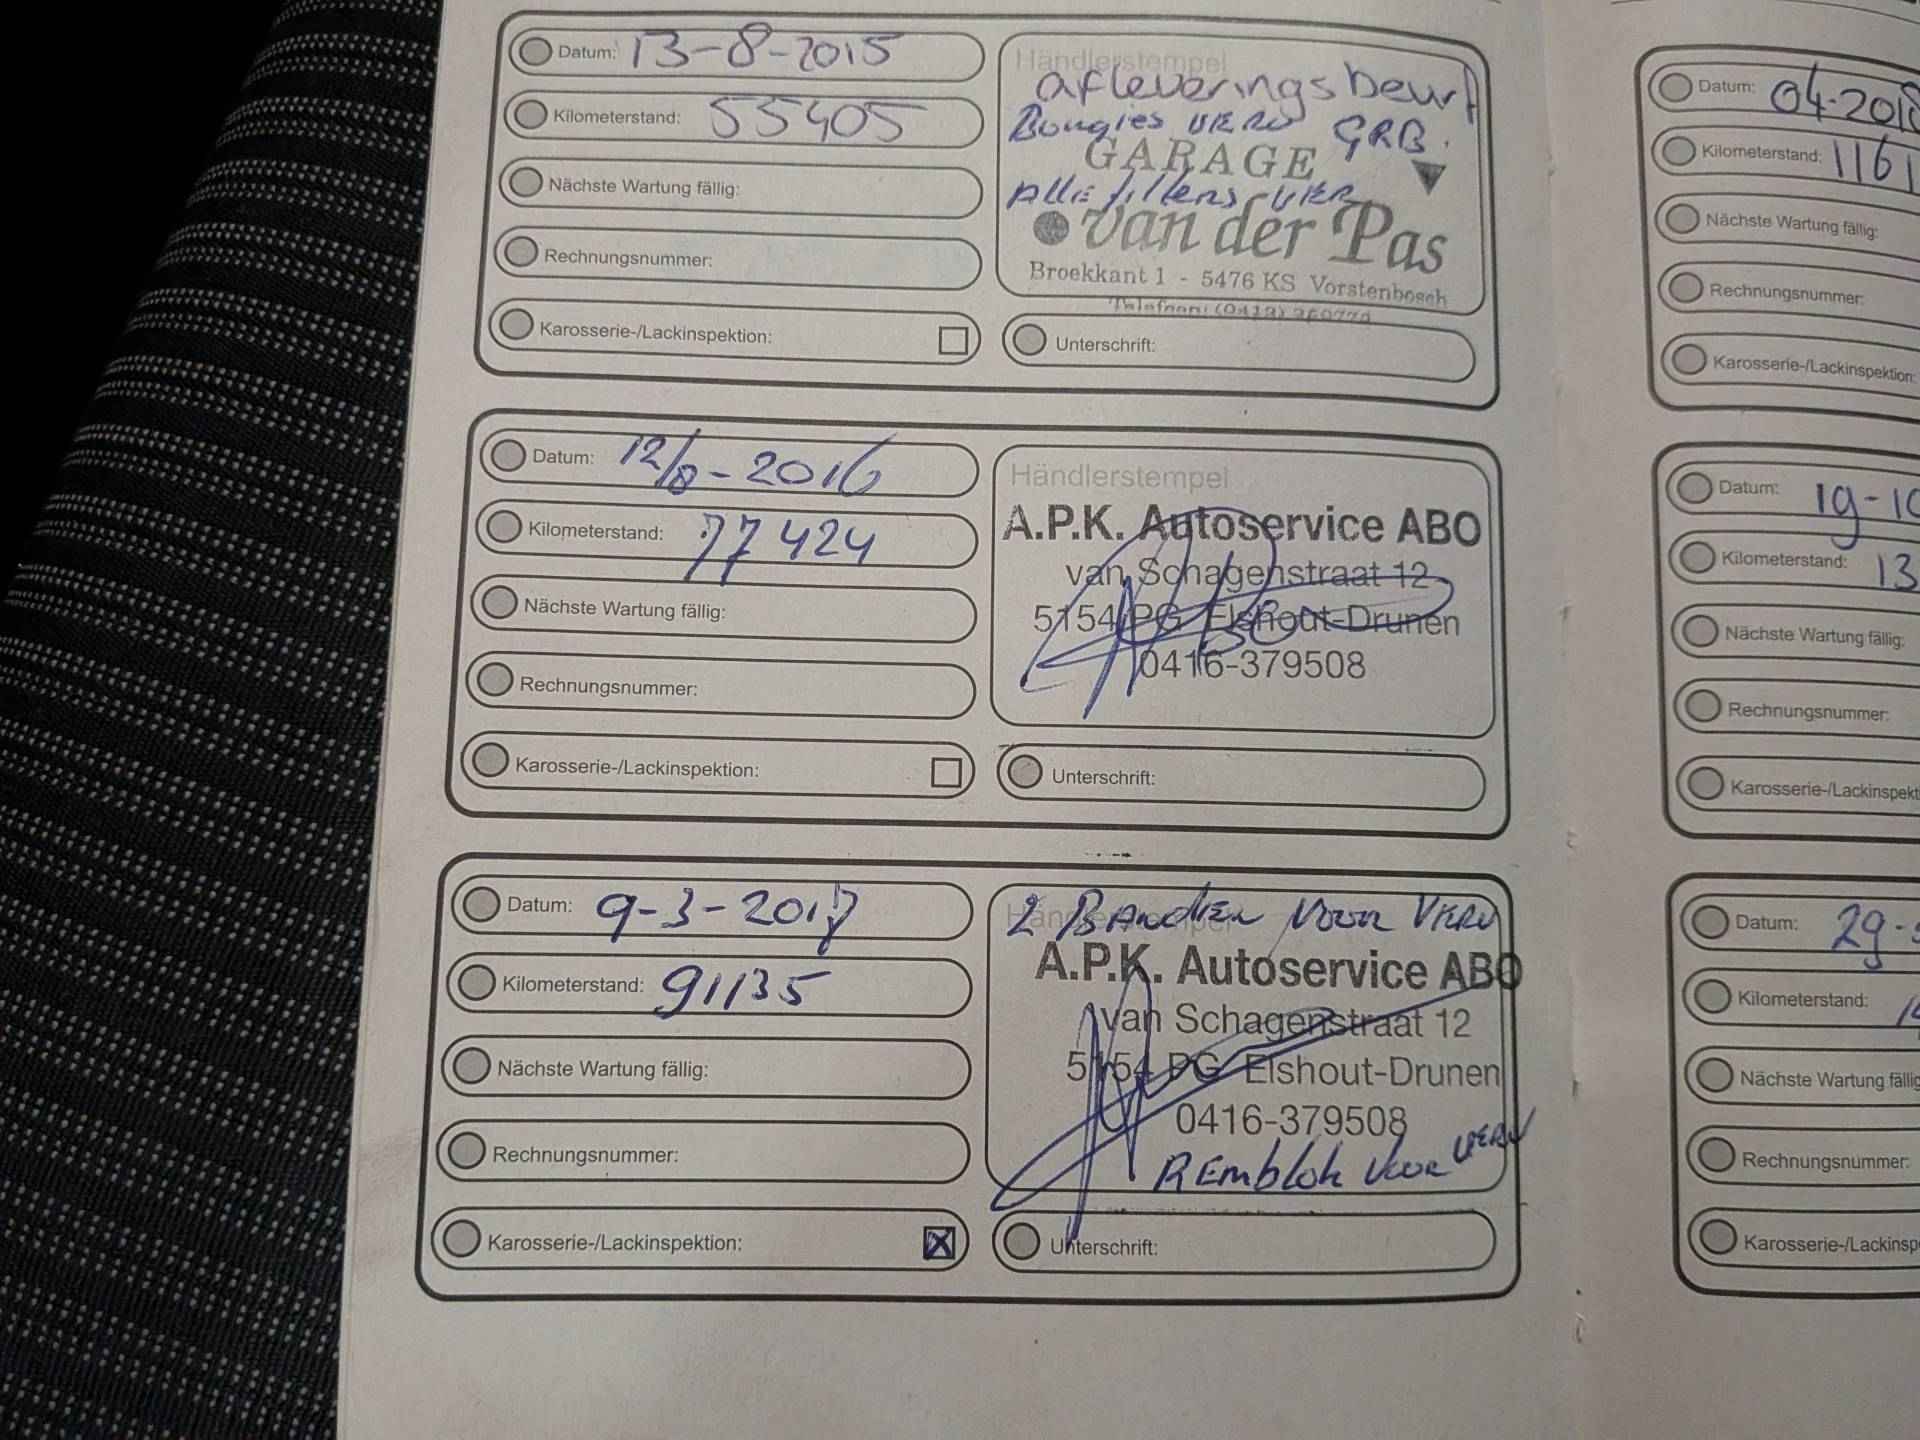 Datum: 13-8-2015
Kilometerstand: 55405
Nächste Wartung fällig:
Rechnungsnummer:
Karosserie-/Lackinspektion:
Händlerstempel
afleveringsbeurt
Bougies VERV GRB.
GARAGE
Alle filters VER
van der Pas
Broekkant 1 - 5476 KS Vorstenbosch
Telefoon: (0413)
Unterschrift:
Datum: 12/8-2016
Kilometerstand: 77424
Nächste Wartung fällig:
Rechnungsnummer:
Karosserie-/Lackinspektion:
Händlerstempel
A.P.K. Autoservice ABO
van Schagenstraat 12
5154 PG Elshout-Drunen
0416-379508
Unterschrift:
Datum: 9-3-2017
Kilometerstand: 91135
Nächste Wartung fällig:
Rechnungsnummer:
Karosserie-/Lackinspektion:
Händlerstempel
2 Banden voor VERV
A.P.K. Autoservice ABO
van Schagenstraat 12
5154 PG Elshout-Drunen
0416-379508
REmblok voor VERV
Unterschrift:
Datum: 04-2018
Kilometerstand: 1161
Nächste Wartung fällig:
Rechnungsnummer:
Karosserie-/Lackinspektion:
Datum: 19-10
Kilometerstand: 13
Nächste Wartung fällig:
Rechnungsnummer:
Karosserie-/Lackinspekt
Datum: 29-
Kilometerstand: 1
Nächste Wartung fällig
Rechnungsnummer:
Karosserie-/Lackinsp